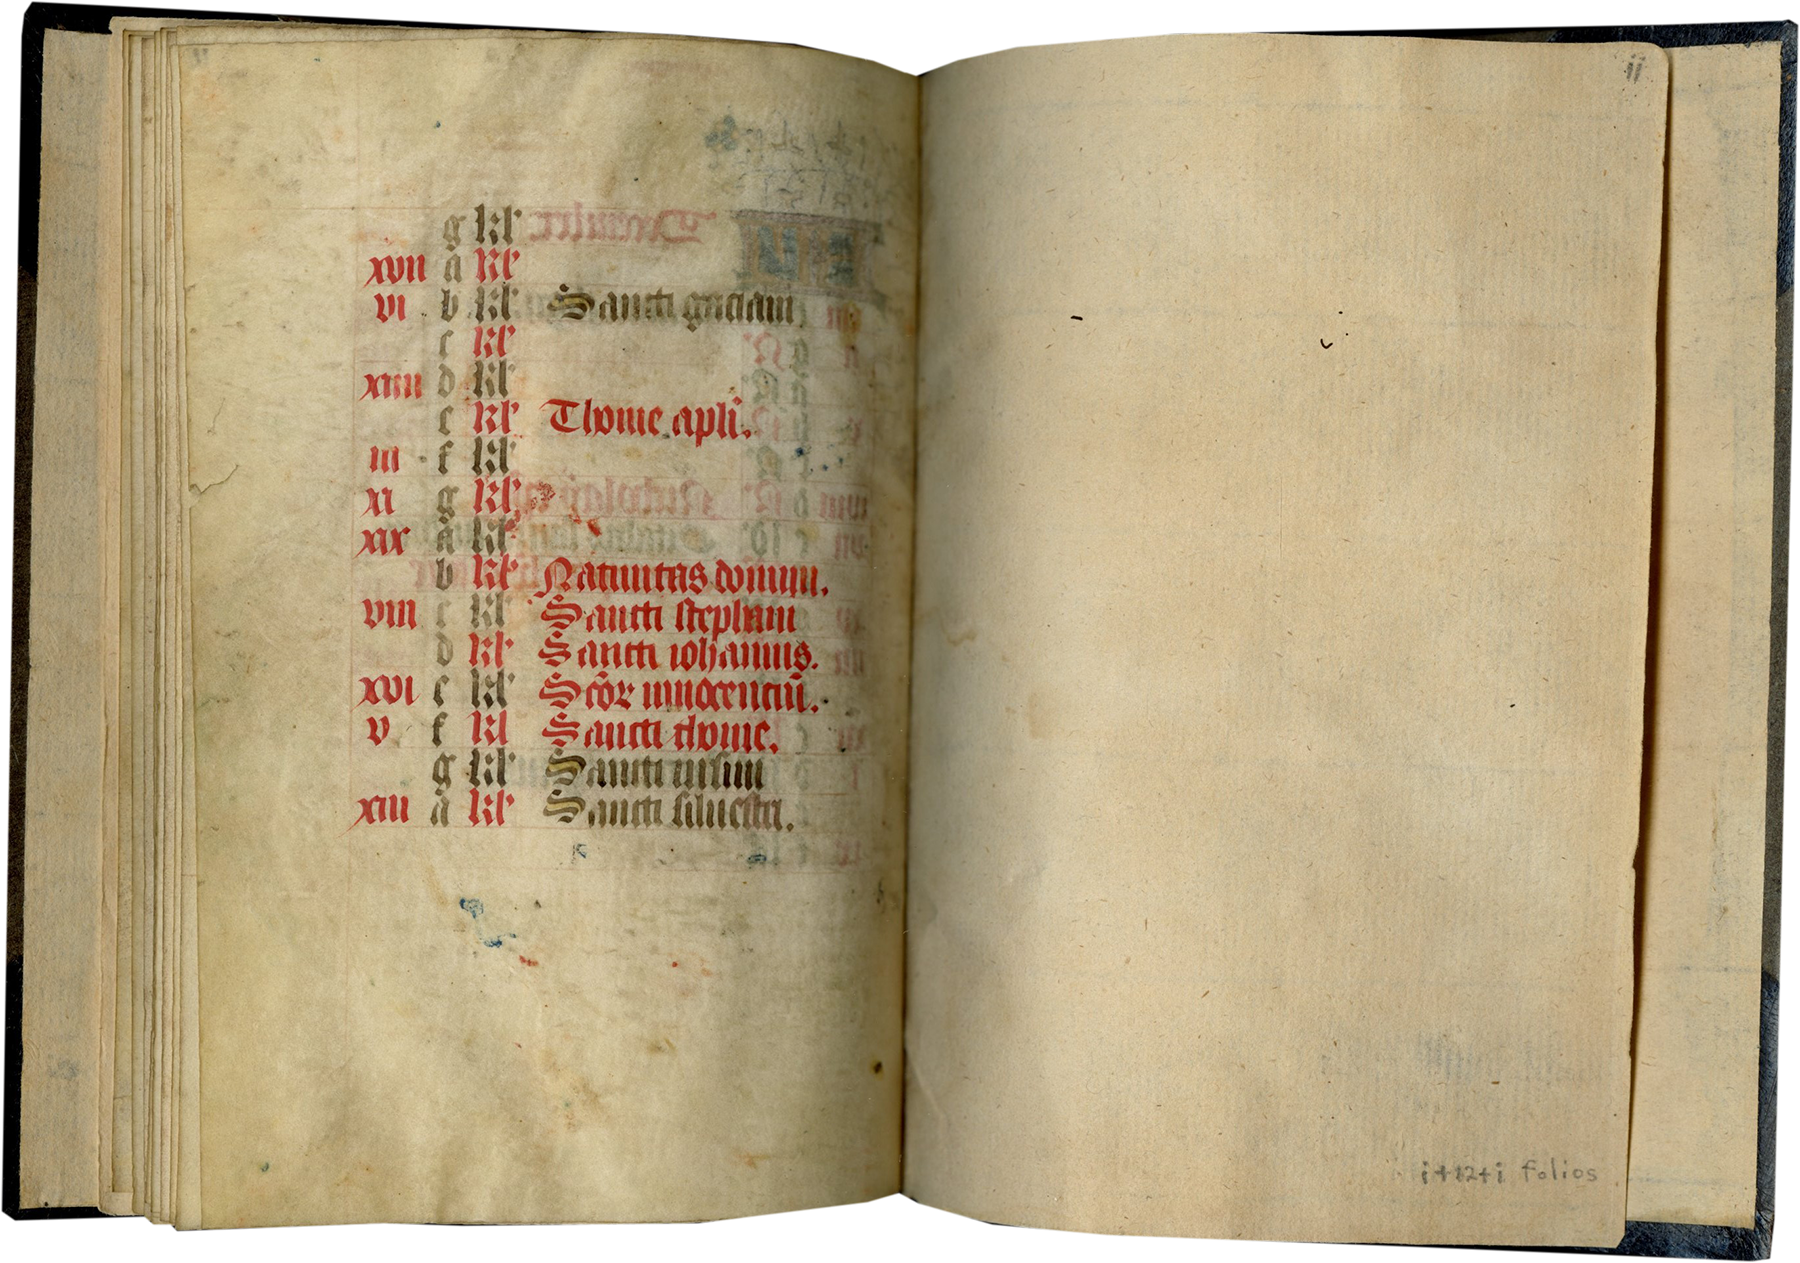 g kl'
xvii a kl'
vi b kl' Sancti gaciani
c kl'
xiiii d kl'
e kl' Thome apli.
iii f kl'
xi g kl'
xix a kl'
b kl' Natiuitas domini.
viii c kl' Sancti stephani
d kl' Sancti iohannis.
xvi e kl' Scõr innocenciũ.
v f kl Sancti thome.
g kl' Sancti
xiii a kl' Sancti siluestri.
ii
i+12+i folios